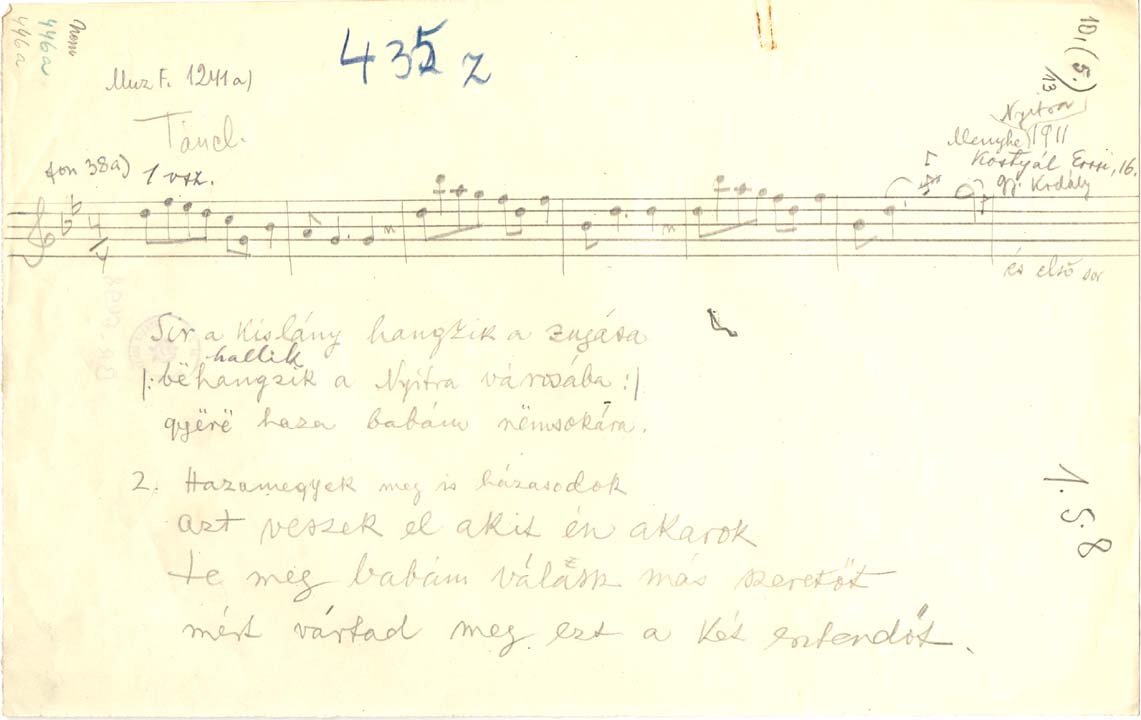 446a
446a
435 z
10, (5.)
13
Muz F. 1241 a)
Nyitra
Menyhe 1911
Táncl.
Kostyál Erzsi, 16.
fon 38a) 1 vsz.
gy. Kodály
és első sor
Sir a kislány hangzik a zugása
hallik
|: bëhangzik a Nyitra városába :|
gyërë haza babám nëmsokára.
2. Hazamegyek meg is házasodok
azt veszek el akit én akarok
te meg babám válassz más szeretőt
mért vártad meg ezt a két esztendőt.
1. 5. 8